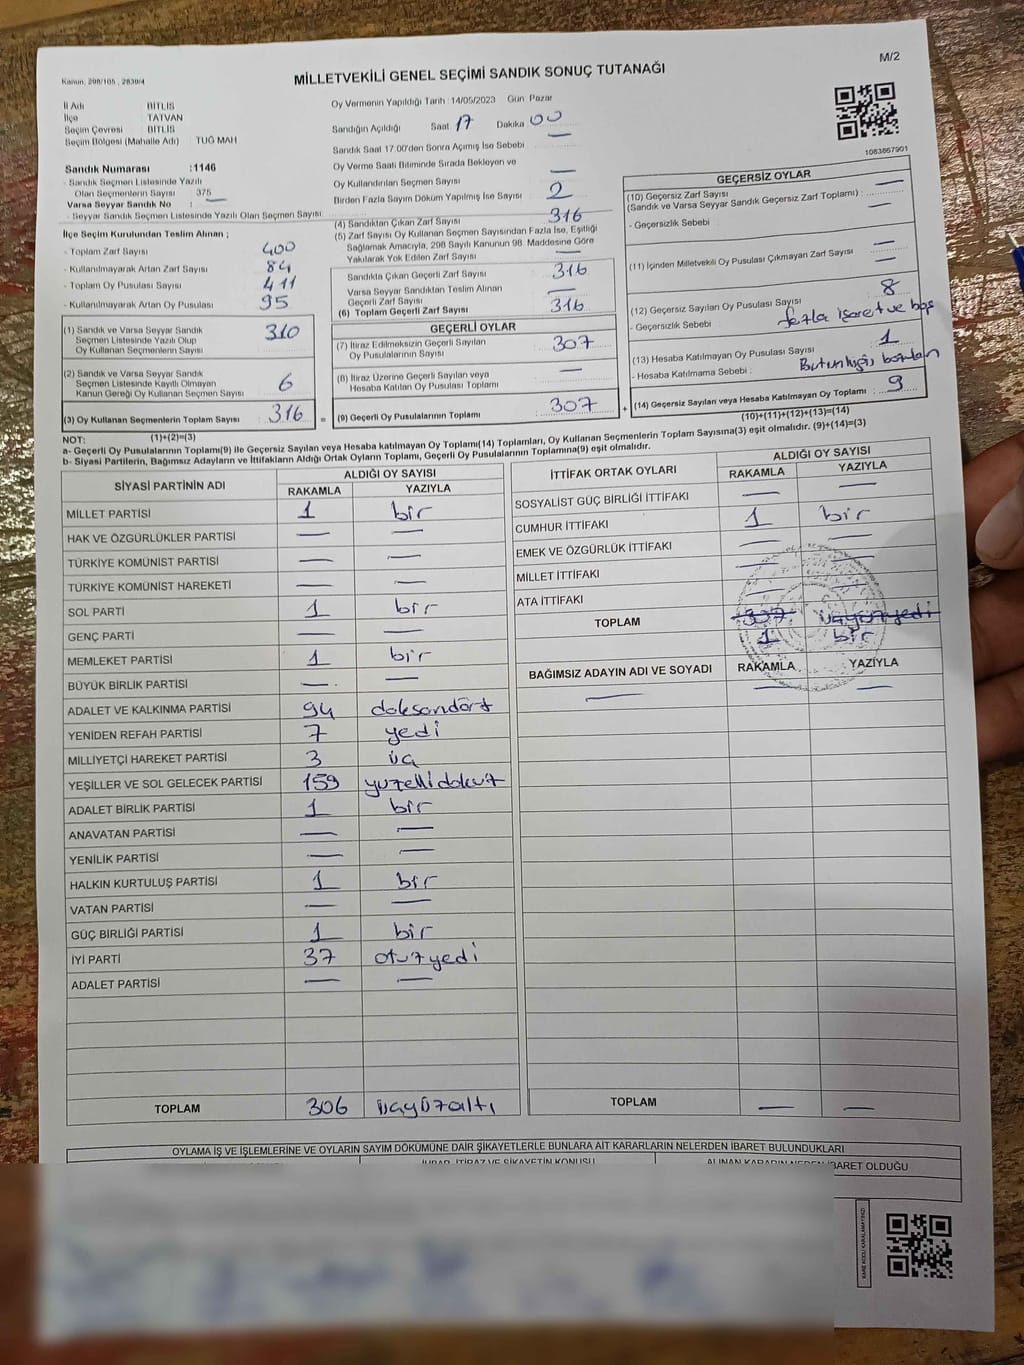 Kanun, 298/105 , 2839/4
M/2
MİLLETVEKİLİ GENEL SEÇİMİ SANDIK SONUÇ TUTANAĞI
İl Adı : BİTLİS
İlçe : TATVAN
Seçim Çevresi : BİTLİS
Seçim Bölgesi (Mahalle Adı) : TUĞ MAH
Sandık Numarası :1146
- Sandık Seçmen Listesinde Yazılı
Olan Seçmenlerin Sayısı : 375
Varsa Seyyar Sandık No : —
- Seyyar Sandık Seçmen Listesinde Yazılı Olan Seçmen Sayısı:
İlçe Seçim Kurulundan Teslim Alınan ;
- Toplam Zarf Sayısı : 400
- Kullanılmayarak Artan Zarf Sayısı : 84
- Toplam Oy Pusulası Sayısı : 411
- Kullanılmayarak Artan Oy Pusulası : 95
(1) Sandık ve Varsa Seyyar Sandık
Seçmen Listesinde Yazılı Olup
Oy Kullanan Seçmenlerin Sayısı : 310
(2) Sandık ve Varsa Seyyar Sandık
Seçmen Listesinde Kayıtlı Olmayan
Kanun Gereği Oy Kullanan Seçmen Sayısı : 6
(3) Oy Kullanan Seçmenlerin Toplam Sayısı : 316
(1)+(2)=(3)
Oy Vermenin Yapıldığı Tarih : 14/05/2023 Gün Pazar
Sandığın Açıldığı Saat 17 Dakika 00
Sandık Saat 17.00'den Sonra Açımış İse Sebebi —
Oy Verme Saati Bitiminde Sırada Bekleyen ve
Oy Kullandırılan Seçmen Sayısı —
Birden Fazla Sayım Döküm Yapılmış İse Sayısı 2
(4) Sandıktan Çıkan Zarf Sayısı : 316
(5) Zarf Sayısı Oy Kullanan Seçmen Sayısından Fazla İse, Eşitliği
Sağlamak Amacıyla, 298 Sayılı Kanunun 98. Maddesine Göre
Yakılarak Yok Edilen Zarf Sayısı : —
Sandıkta Çıkan Geçerli Zarf Sayısı : 316
Varsa Seyyar Sandıktan Teslim Alınan
Geçerli Zarf Sayısı : —
(6) Toplam Geçerli Zarf Sayısı : 316
GEÇERLİ OYLAR
(7) İtiraz Edilmeksizin Geçerli Sayılan
Oy Pusulasının Sayısı : 307
(8) İtiraz Üzerine Geçerli Sayılan veya
Hesaba Katılan Oy Pusulası Toplamı : —
= (9) Geçerli Oy Pusulalarının Toplamı : 307
1083867901
GEÇERSİZ OYLAR
(10) Geçersiz Zarf Sayısı : —
(Sandık ve Varsa Seyyar Sandık Geçersiz Zarf Toplamı) :
- Geçersizlik Sebebi : —
(11) İçinden Milletvekili Oy Pusulası Çıkmayan Zarf Sayısı : —
(12) Geçersiz Sayılan Oy Pusulası Sayısı : 8
- Geçersizlik Sebebi : fazla işaret ve boş
(13) Hesaba Katılmayan Oy Pusulası Sayısı : 1
- Hesaba Katılmama Sebebi : Bütünlüğü bozulan
+ (14) Geçersiz Sayılan veya Hesaba Katılmayan Oy Toplamı : 9
(10)+(11)+(12)+(13)=(14)
NOT:
a- Geçerli Oy Pusulalarının Toplamı(9) ile Geçersiz Sayılan veya Hesaba katılmayan Oy Toplamı(14) Toplamları, Oy Kullanan Seçmenlerin Toplam Sayısına(3) eşit olmalıdır. (9)+(14)=(3)
b- Siyasi Partilerin, Bağımsız Adayların ve İttifakların Aldığı Ortak Oyların Toplamı, Geçerli Oy Pusulalarının Toplamına(9) eşit olmalıdır.
SİYASİ PARTİNİN ADI ALDIĞI OY SAYISI
RAKAMLA YAZIYLA
MİLLET PARTİSİ 1 bir
HAK VE ÖZGÜRLÜKLER PARTİSİ — —
TÜRKİYE KOMÜNİST PARTİSİ — —
TÜRKİYE KOMÜNİST HAREKETİ — —
SOL PARTİ 1 bir
GENÇ PARTİ — —
MEMLEKET PARTİSİ 1 bir
BÜYÜK BİRLİK PARTİSİ — —
ADALET VE KALKINMA PARTİSİ 94 doksandört
YENİDEN REFAH PARTİSİ 7 yedi
MİLLİYETÇİ HAREKET PARTİSİ 3 üç
YEŞİLLER VE SOL GELECEK PARTİSİ 159 yüzellidokuz
ADALET BİRLİK PARTİSİ 1 bir
ANAVATAN PARTİSİ — —
YENİLİK PARTİSİ — —
HALKIN KURTULUŞ PARTİSİ 1 bir
VATAN PARTİSİ — —
GÜÇ BİRLİĞİ PARTİSİ 1 bir
İYİ PARTİ 37 otuzyedi
ADALET PARTİSİ — —
TOPLAM 306 üçyüzaltı
İTTİFAK ORTAK OYLARI ALDIĞI OY SAYISI
RAKAMLA YAZIYLA
SOSYALİST GÜÇ BİRLİĞİ İTTİFAKI — —
CUMHUR İTTİFAKI 1 bir
EMEK VE ÖZGÜRLÜK İTTİFAKI — —
MİLLET İTTİFAKI — —
ATA İTTİFAKI — —
TOPLAM 307 üçyüzyedi
1 bir
BAĞIMSIZ ADAYIN ADI VE SOYADI RAKAMLA YAZIYLA
— — —
TOPLAM — —
OYLAMA İŞ VE İŞLEMLERİNE VE OYLARIN SAYIM DÖKÜMÜNE DAİR ŞİKAYETLERLE BUNLARA AİT KARARLARIN NELERDEN İBARET BULUNDUKLARI
İHBAR, İTİRAZ VE ŞİKAYETİN KONUSU ALINAN KARARIN NEDEN İBARET OLDUĞU
KARE KODU KARALAMAYINIZ!